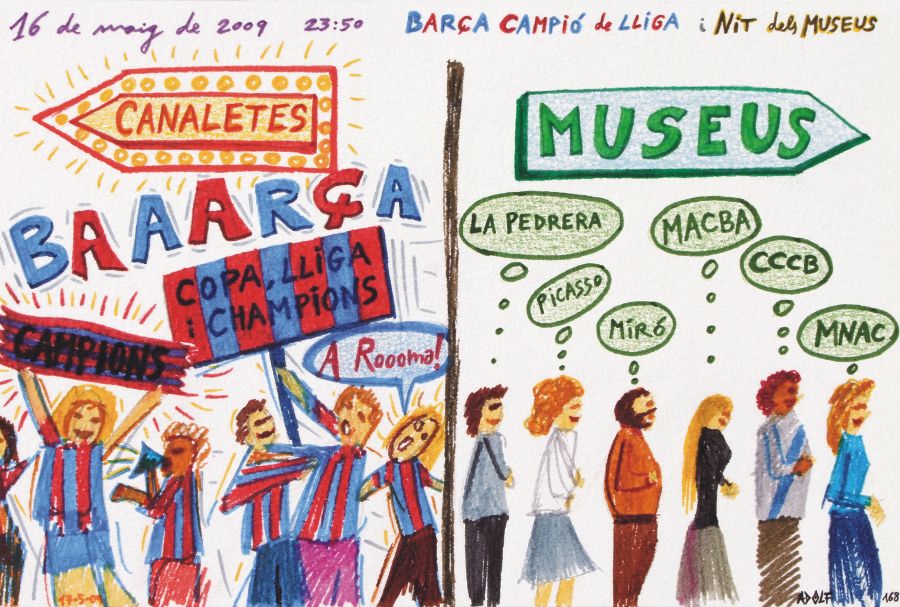 16 de maig de 2009 23:50
BARÇA CAMPIÓ de LLiGA i NiT dels MUSEUS
CANALETES
BAAARÇA
COPA, LLiGA
i CHAMPiONS
CAMPIONS
A Roooma!
MUSEUS
LA PEDRERA
PiCASSO
MiRÓ
MACBA
CCCB
MNAC
17-5-09
ADOLF
168